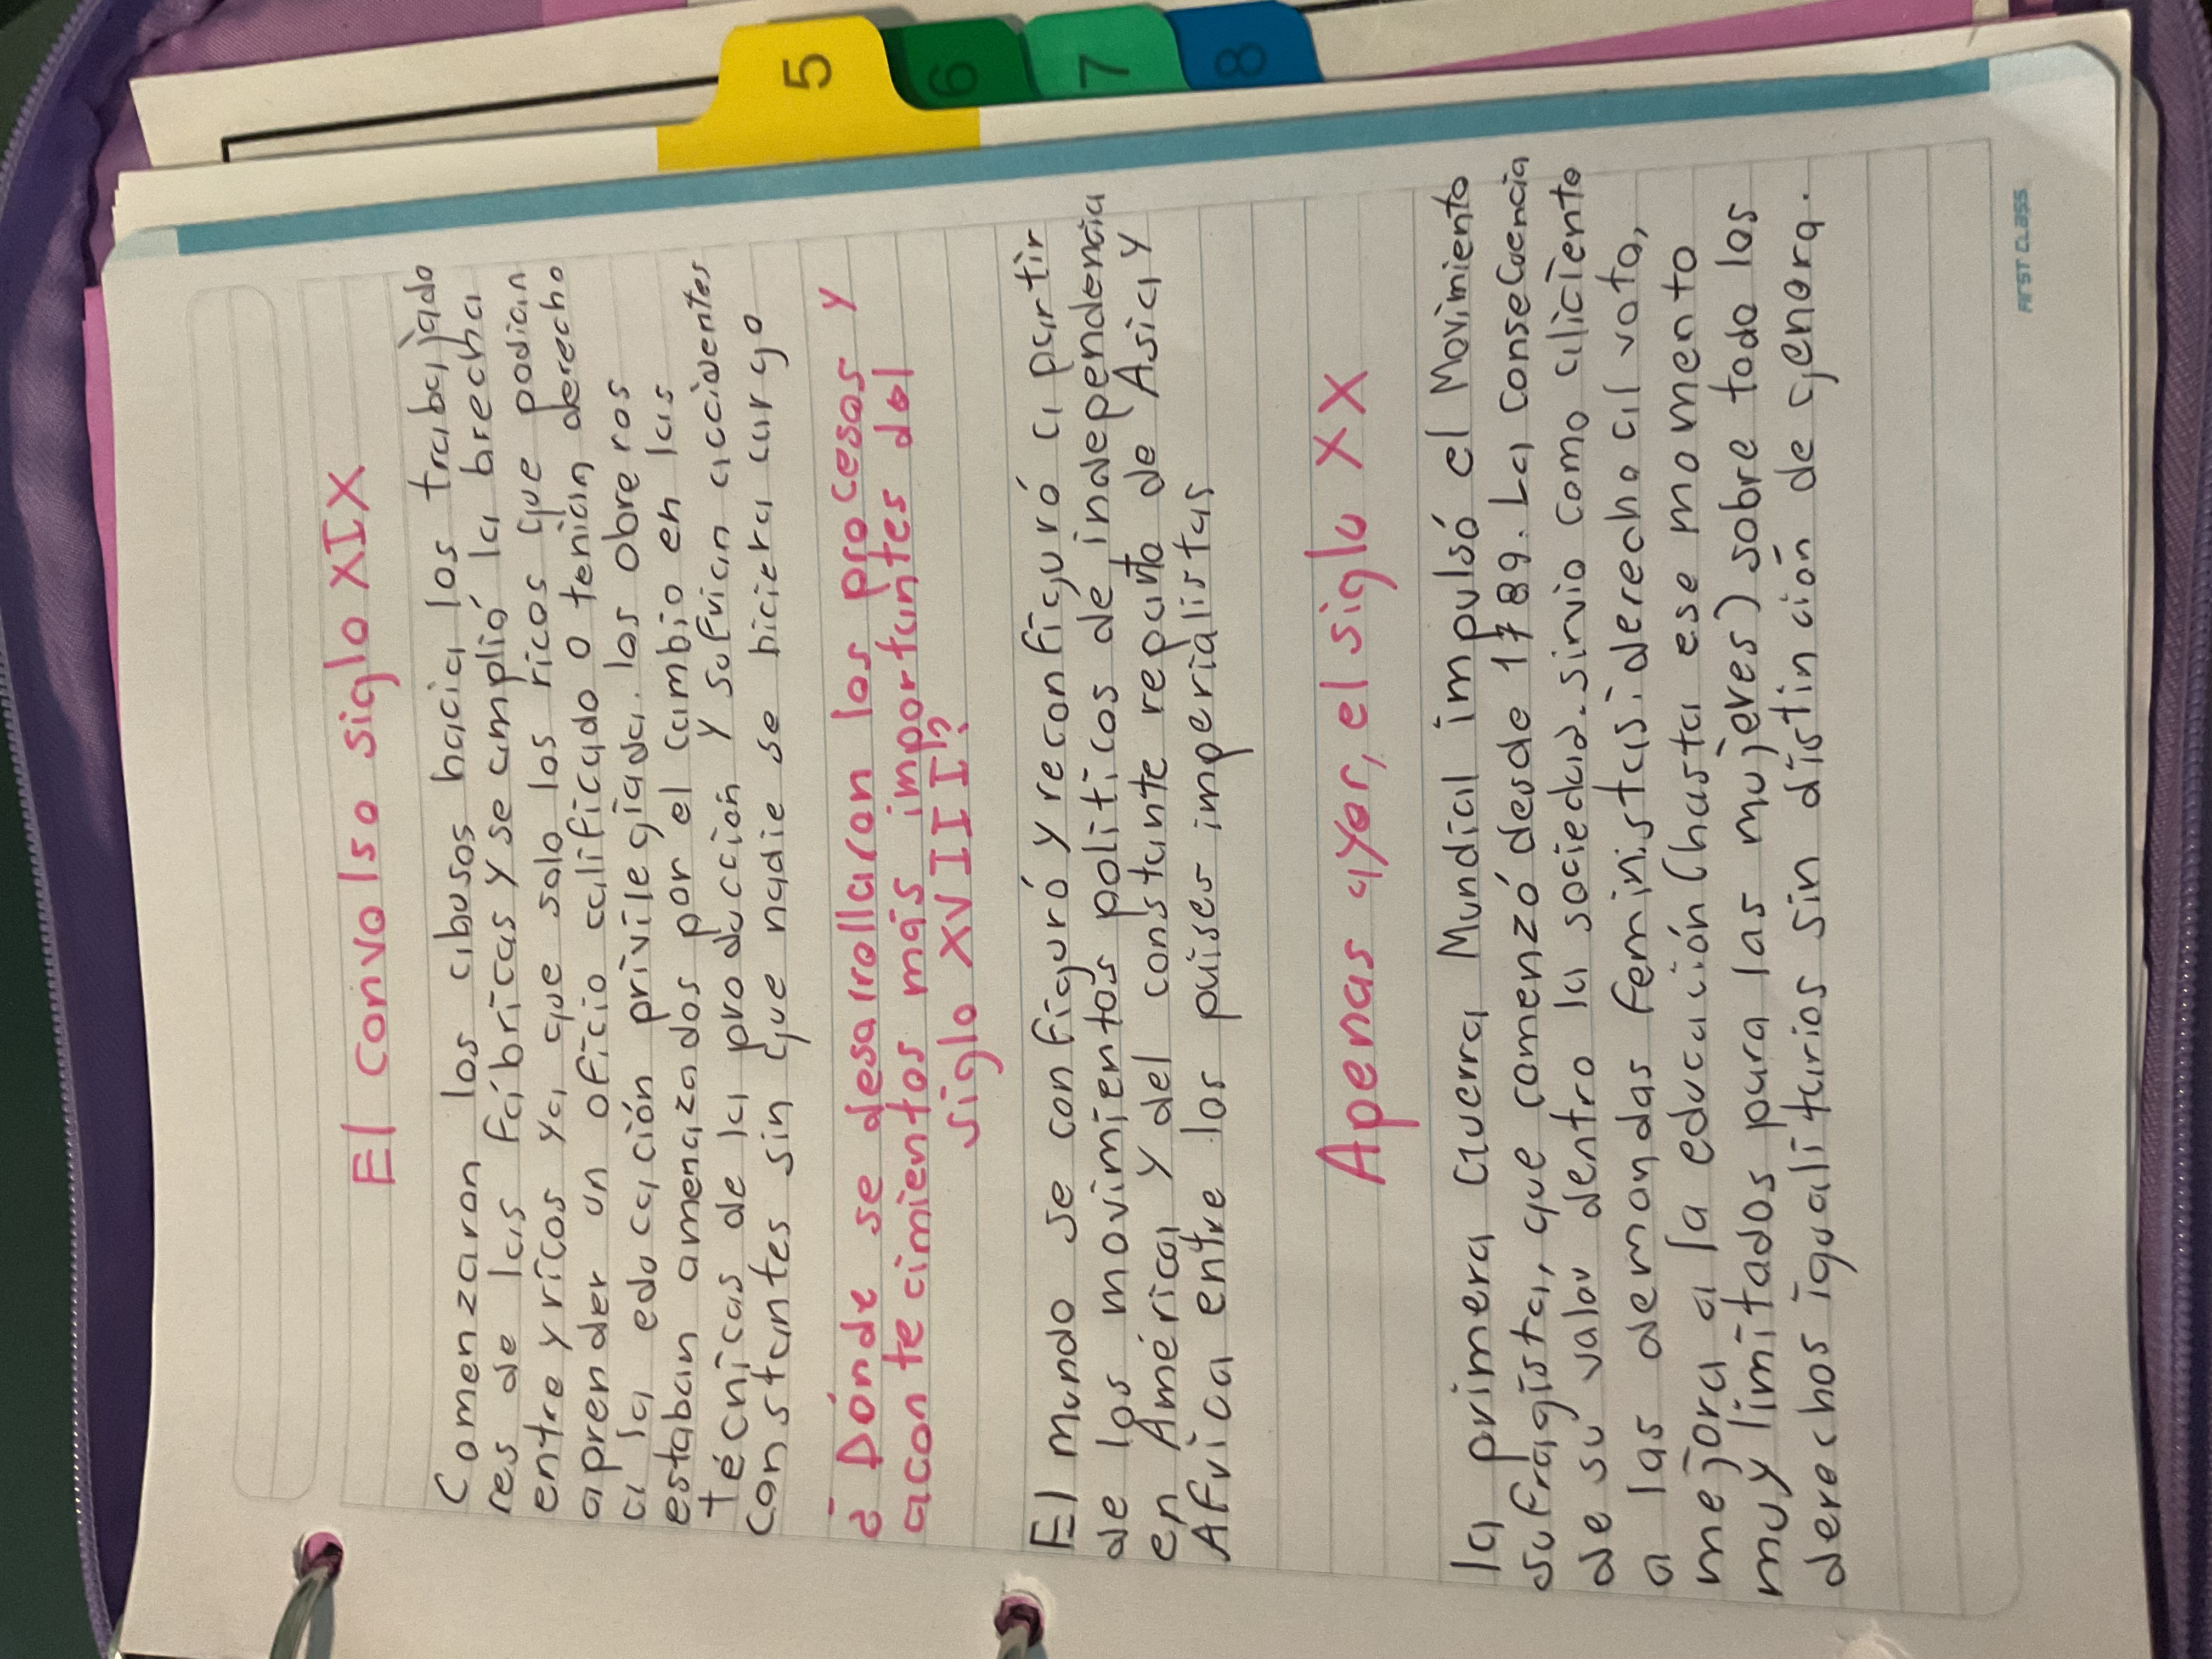 El convolso siglo XIX
Comenzaron los abusos hacia los trabajado
res de las fábricas y se amplió la brecha
entre y ricos ya que solo los ricos que podian
aprender un oficio calificado o tenian derecho
a la educación privilegiada. los obreros
estaban amenazados por el cambio en las
técnicas de la producción y sufrian accidentes
constantes sin que nadie se hiciera cargo
¿Dónde se desarrollaron los procesos y
acontecimientos más importantes del
siglo XVIII?
El mundo se configuró y reconfiguró a partir
de los movimientos politicos de independencia
en América y del constante reparto de Asia y
Africa entre los paises imperialistas
Apenas ayer, el siglo XX
la primera Guerra Mundial impulsó el Movimiento
sufragista, que comenzó desde 1789. La consecuencia
de su valor dentro la sociedad. sirvio como aliciente
a las demandas feministas; derecho al voto,
mejora a la educación (hasta ese momento
muy limitados para las mujeres) sobre todo los
derechos igualitarios sin distinción de genero.
FIRST CLASS
5
6
7
8